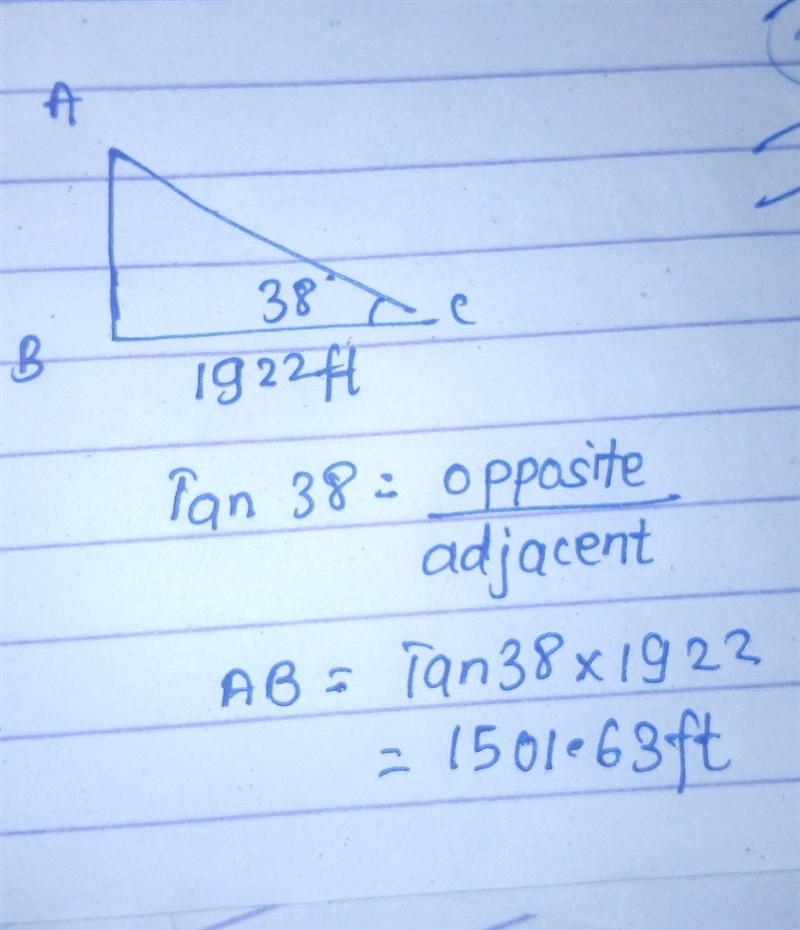 A
38°
C
B
1922ft
Tan 38 = opposite
adjacent
AB = Tan38 x 1922
= 1501.63ft